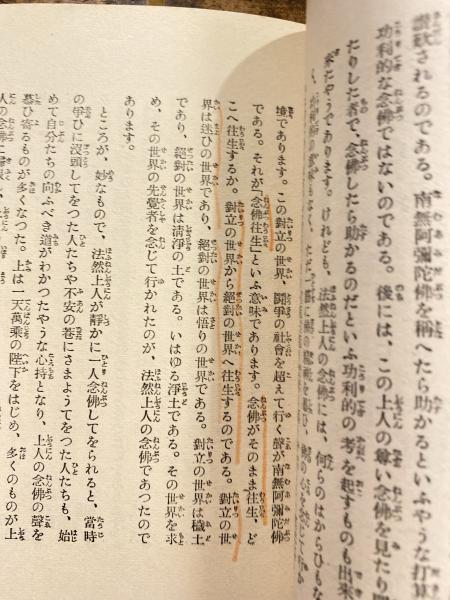 讃歎されるのである。南無阿彌陀佛を稱へたら助かるといふやうな打算
功利的な念佛ではないのである。後には、この上人の尊い念佛を見たり聞
たりした者で、念佛したら助かるのだといふ功利的の考を起すものも出來
來たやうであります。けれども、法然上人の念佛には、何らのはからひもな
境であります。この對立の世界、鬪爭の社會を超えて行く聲が南無阿彌陀佛
である。それが「念佛往生」といふ意味であります。念佛がそのまま往生、ど
こへ往生するか。對立の世界から絕對の世界へ往生するのである。對立の世
界は迷ひの世界であり、絕對の世界は悟りの世界である。對立の世界は穢土
であり、絕對の世界は清淨の土である。いはゆる淨土である。その世界を求
め、その世界の先覺者を念じて行かれたのが、法然上人の念佛であつたので
あります。
ところが、妙なもので、法然上人が靜かに一人念佛してをられると、當時
の爭ひに沒頭してをつた人たちや不安の巷にさまようてをつた人たちも、始
めて自分たちの向ふべき道がわかつたやうな心持となり、上人の念佛の聲を
慕ひ寄るものが多くなつた。上は一天萬乘の陛下をはじめ、多くのものが上
人の念佛に